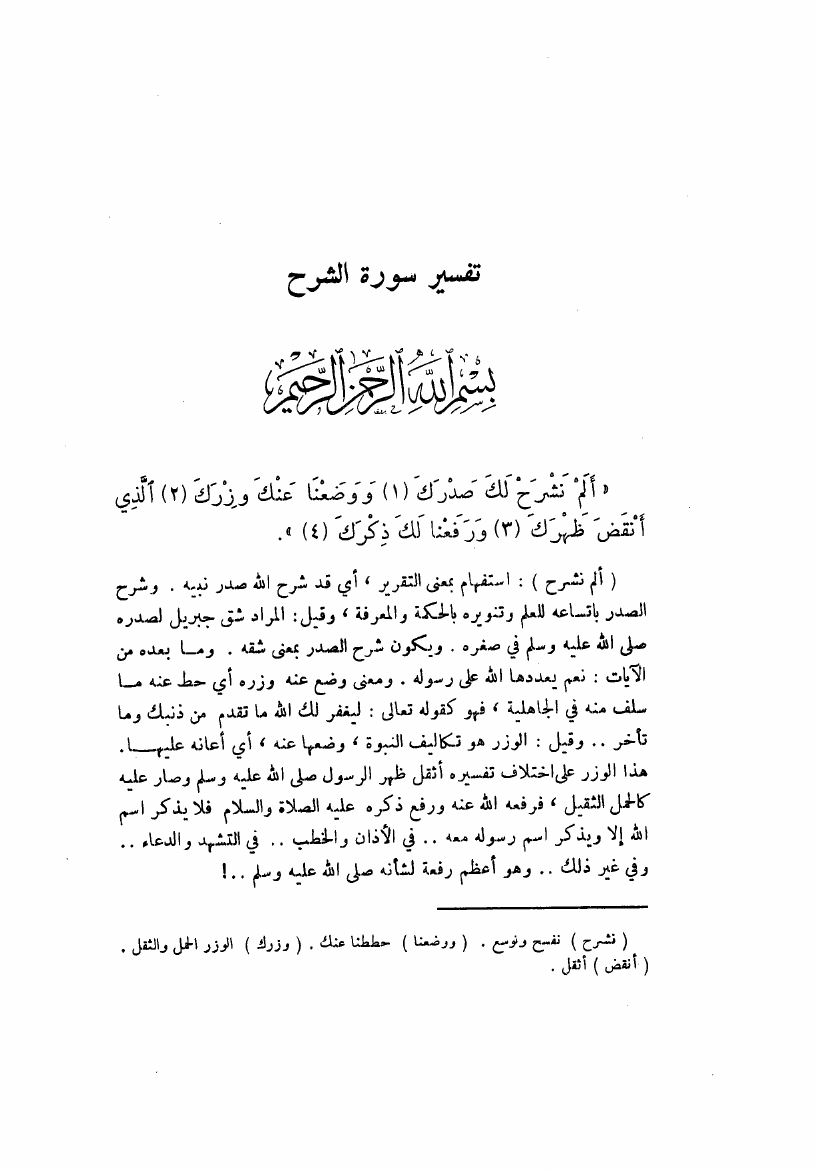 تفسير سورة الشرح
بِسْمِ ٱللَّهِ ٱلرَّحْمَٰنِ ٱلرَّحِيمِ
« أَلَمْ نَشْرَحْ لَكَ صَدْرَكَ (١) وَوَضَعْنَا عَنْكَ وِزْرَكَ (٢) ٱلَّذِي
أَنْقَضَ ظَهْرَكَ (٣) وَرَفَعْنَا لَكَ ذِكْرَكَ (٤) ».
( ألم نشرح ) : استفهام بمعنى التقرير ، أي قد شرح الله صدر نبيه . وشرح
الصدر باتساعه للعلم وتنويره بالحكمة والمعرفة ، وقيل: المراد شق جبريل لصدره
صلى الله عليه وسلم في صغره . ويكون شرح الصدر بمعنى شقه . وما بعده من
الآيات : نعم يعددها الله على رسوله . ومعنى وضع عنه وزره أي حط عنه ما
سلف منه في الجاهلية ، فهو كقوله تعالى : ليغفر لك الله ما تقدم من ذنبك وما
تأخر .. وقيل : الوزر هو تكاليف النبوة ، وضعها عنه ، أي أعانه عليها.
هذا الوزر على اختلاف تفسيره أثقل ظهر الرسول صلى الله عليه وسلم وصار عليه
كالحمل الثقيل ، فرفعه الله عنه ورفع ذكره عليه الصلاة والسلام فلا يذكر اسم
الله إلا ويذكر اسم رسوله معه .. في الأذان والخطب .. في التشهد والدعاء ..
وفي غير ذلك .. وهو أعظم رفعة لشأنه صلى الله عليه وسلم ..!
( نشرح ) نفسح ونوسع . ( ووضعنا ) حططنا عنك . ( وزرك ) الوزر الحمل والثقل .
( أنقض ) أثقل .